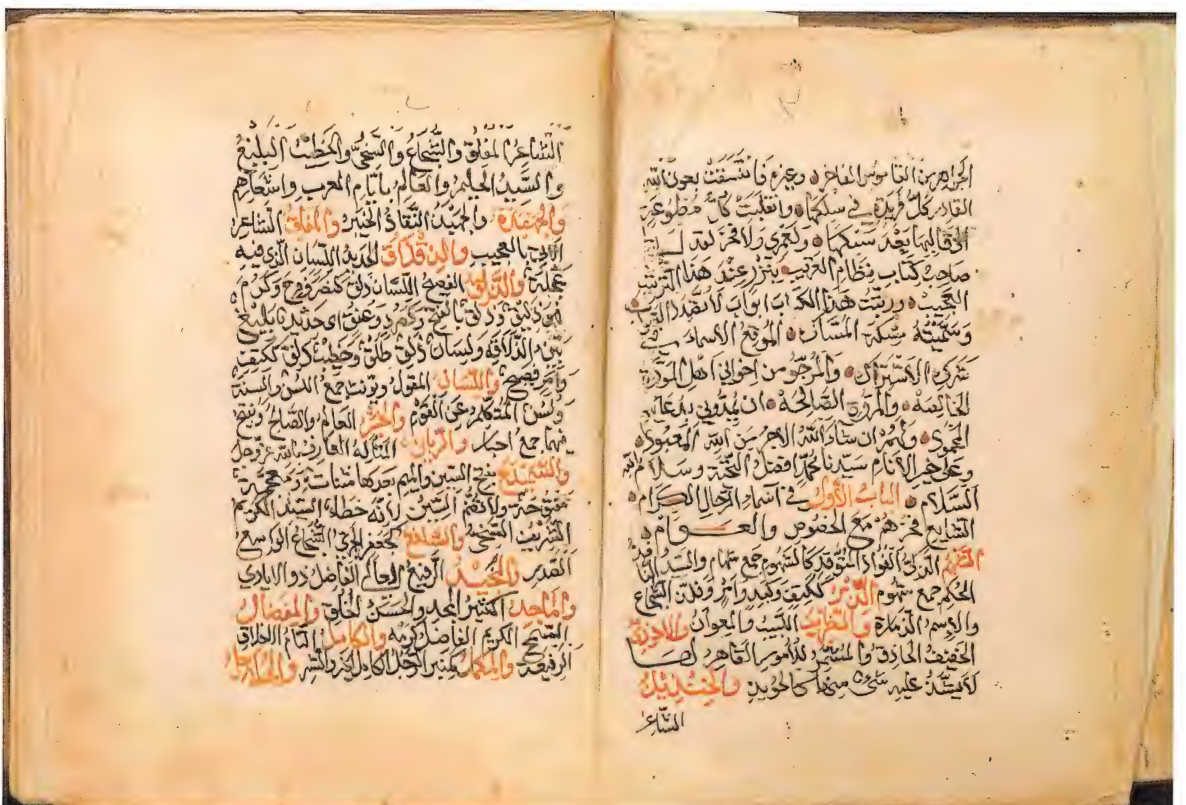 الجواهر من القاموس الفاخر وغيره فاتسقت بعون الله
القادر كل فريدة في سلكها وانقلبت كل مطبوعة
الى قالبها بعد سبكها ولعمري ولا فخر لقد
صاحب كتاب نظام الغريب عند هذا الترتيب
العجيب ورتبت هذا الكتاب ابواب لا
وسميته مسكة الموقع الاسماء في
شرك الاشتراك والمرجو من اخواني اهل المودة
الخالصة والمروة الصالحة ان يمدوني بدعاء
ولهم ان شاء الله الاجر من الله المعبود
وعلى خير الانام سيدنا محمد افضل التحية وسلام الله
السلام الباب الأول في اسماء الرجال الكرام
الشايع فخرهم مع الخصوص والعوام
الشهم الذكي الفؤاد المتوقد كالمشهوم جمع شهام والسيد النافذ
الحكم جمع شهوم الذمر ككتف وكبد وامر وفلز الشجاع
والاسم الذمارة اللبيب والمعوان
الخفيف الحاذق والمشمر للأمور القاهر لها
لا يشذ عليه شيء منها كالحويذ والخنذيذ
الشاعر
الشاعر المفلق والشجاع والسخي والخطيب البليغ
والسيد الحليم والعالم بأيام العرب واشعارهم
والجهبذة والجهبذ النقاد الخبير والمفلق الشاعر
الآتي بالعجيب الحديد اللسان الذي فيه
عجلة والذلق الفصيح اللسان ذلق كنصر وفرح وكرم
فهو ذليق وذلق بالفتح وكصرد وعنق اي حديد بليغ
بين الذلاقة ولسان ذلق طلق وخطيب ذلق ككتف
فصيح واللسان المقول ويؤنث جمع السن والسنة
ولسن المتكلم عن القوم والحبر العالم والصالح ويفتح
فيهما جمع احبار والرباني المتأله العارف بالله عز وجل
والسميذع بفتح السين والميم بعدها مثناة ومعجمة
مفتوحة ولا تضم السين فانه خطاء السيد الكريم
الشريف السخي كجعفر الجري الشجاع الواسع
الصدر الرفيع العالم الفاضل ذو الايادي
والماجد الكثير المجد والحسن الخلق والمفضال
السمح الكريم الفاضل كرمه والكامل التام الاخلاق
الرفيعة والمكمل كمنبر الرجل الكامل للخير والشر